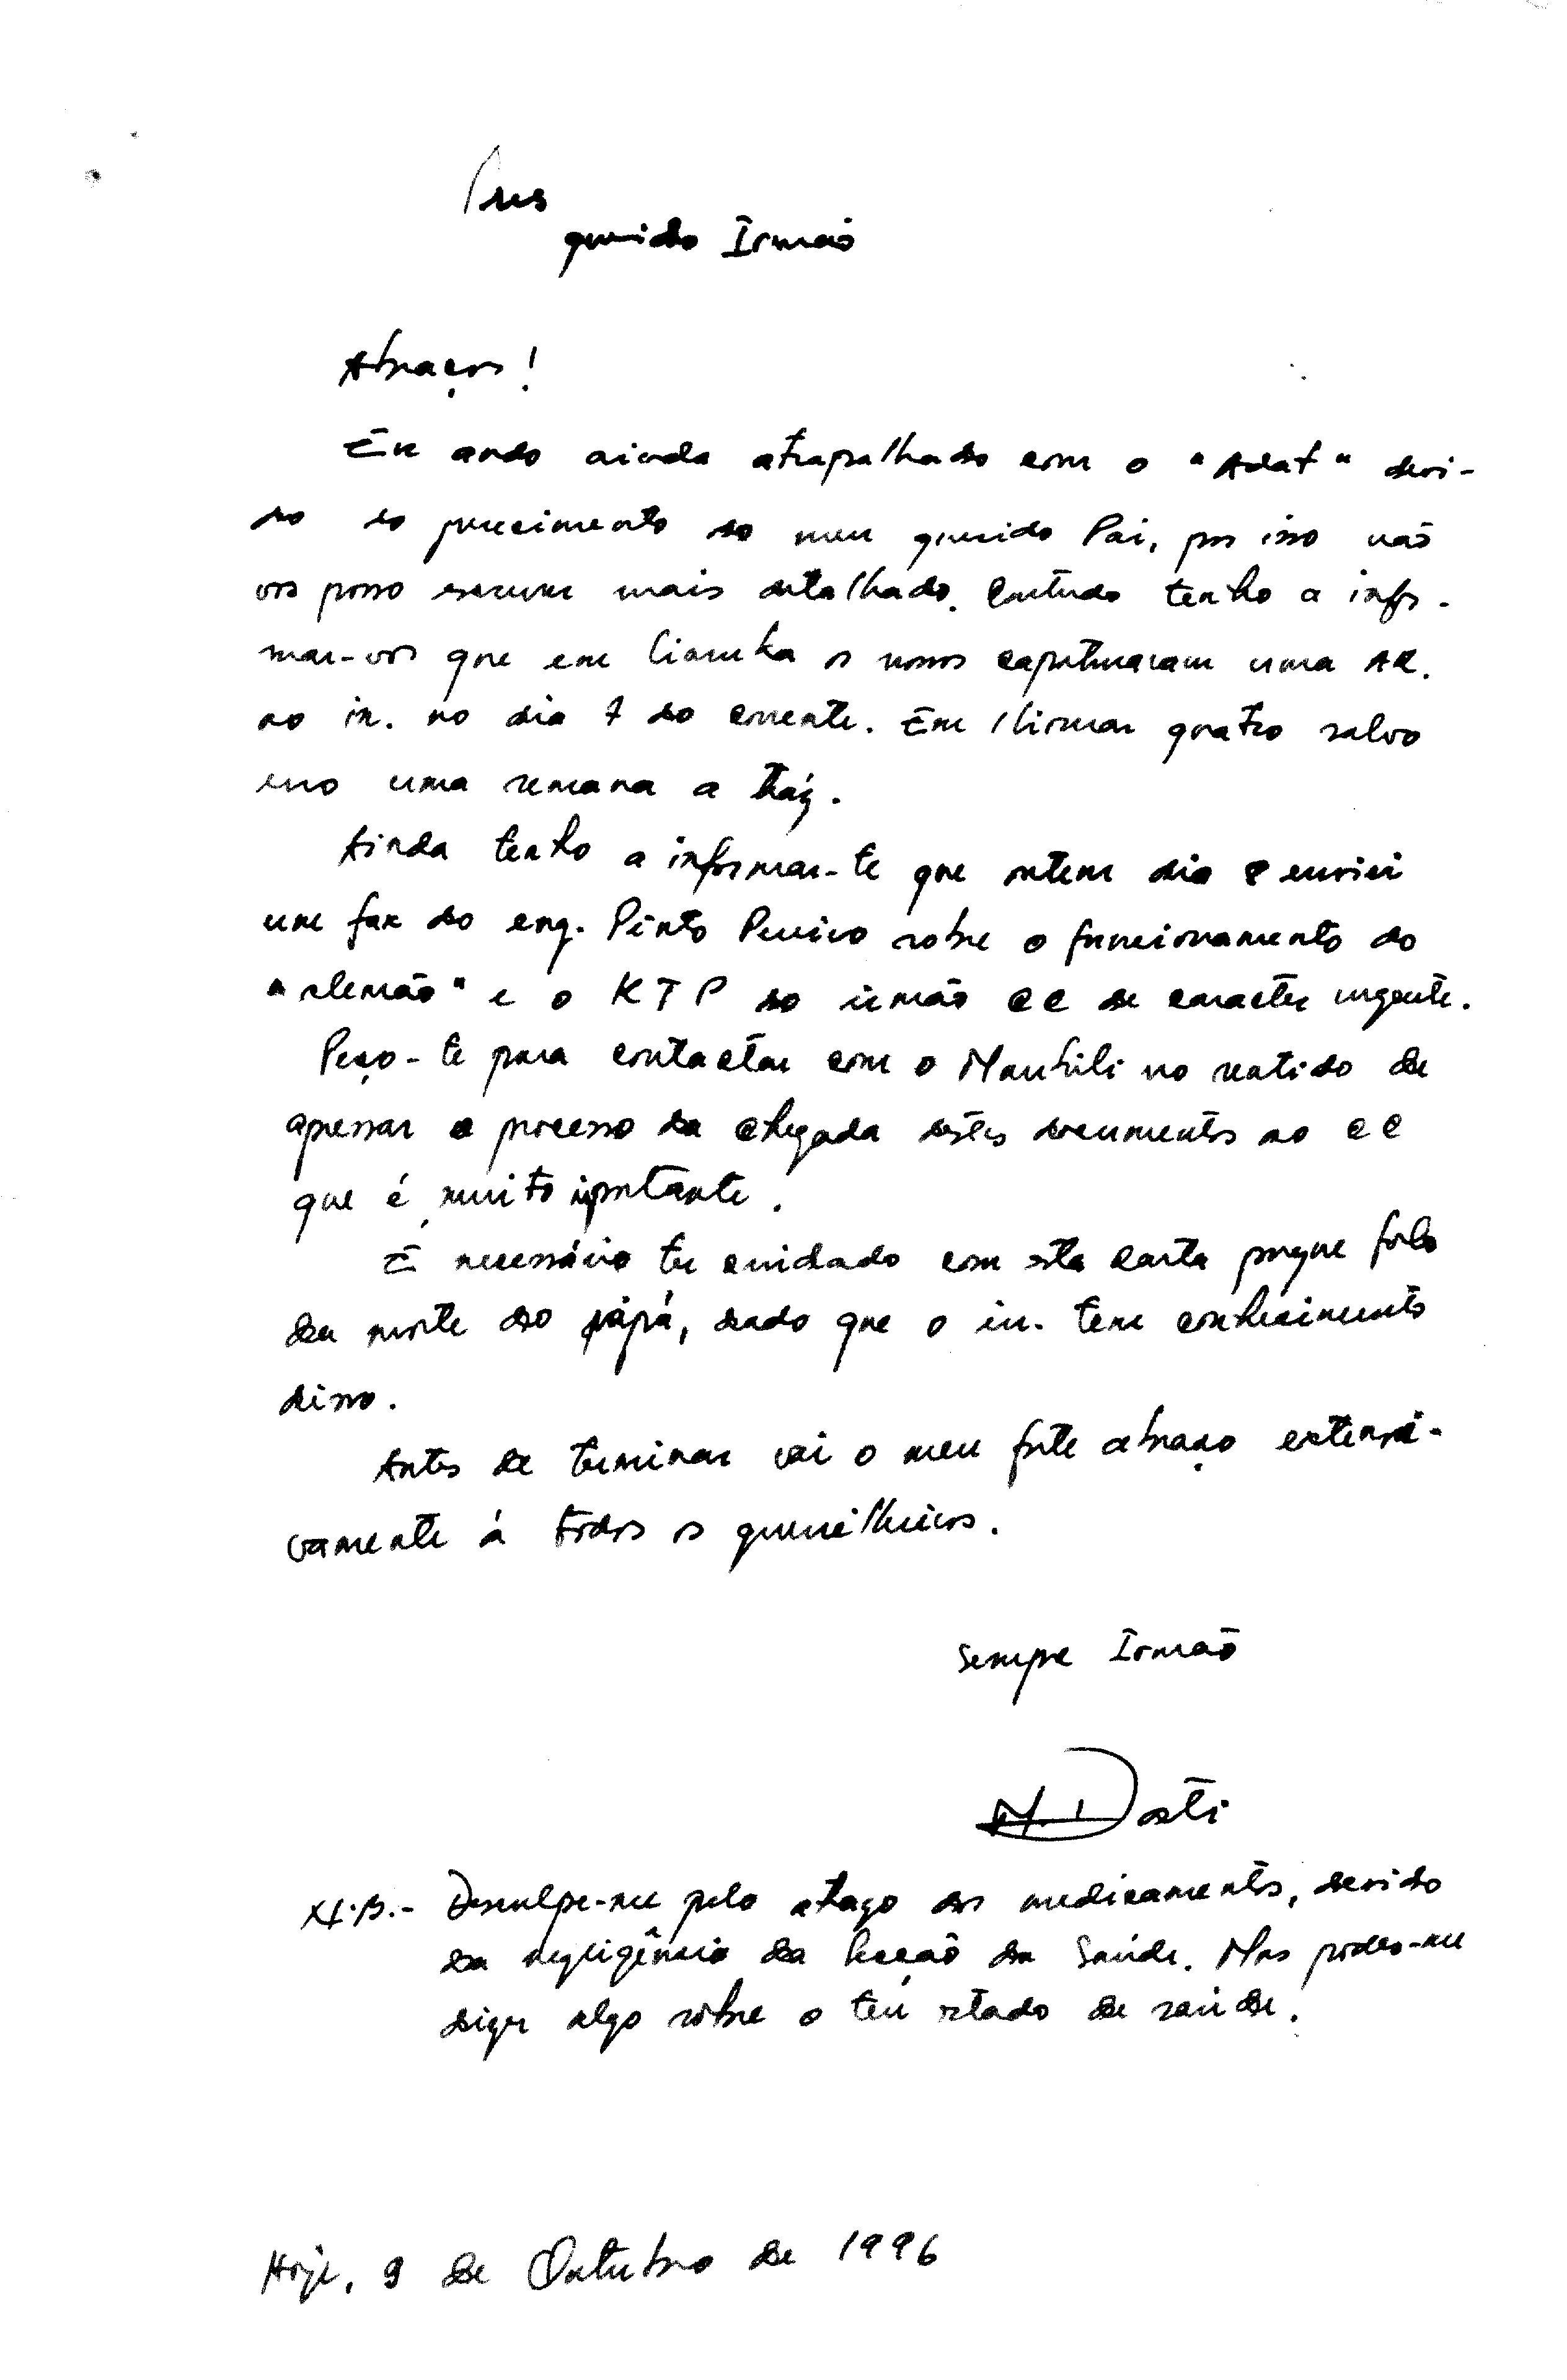 querido Irmão
Abraços!
Eu ando ainda atrapalhado com o "Adat" devi-
do ao perecimento do meu querido Pai, por isso não
vos posso escrever mais detalhado. Contudo tenho a infor-
mar-vos que em os nossos capturaram uma AR.
ao in. no dia 7 do corrente. Em quatro salvo
erro uma semana a tráz.
Ainda tenho a informar-te que ontem dia 8 enviei
um fax do eng. Pinto Pereira sobre o funcionamento do
"alemão" e o KTP do irmão CC de caracter urgente.
Peço-te para contactar com o Mauhili no sentido de
apressar o processo da chegada destes documentos ao CC
que é muito iportante.
É necessário ter cuidado com esta carta porque falo
da morte do pápá, dado que o in. tem conhecimento
disso.
Antes de terminar vai o meu forte abraço extensi-
vamente á todos os guerrilheiros.
Sempre Irmão
N.B.- Desculpe-me pelo atrazo dos medicamentos, devido
da negligência da Secção da Saúde. Mas podes-me
dizer algo sobre o teu estado de saúde.
Hoje, 9 de Outubro de 1996